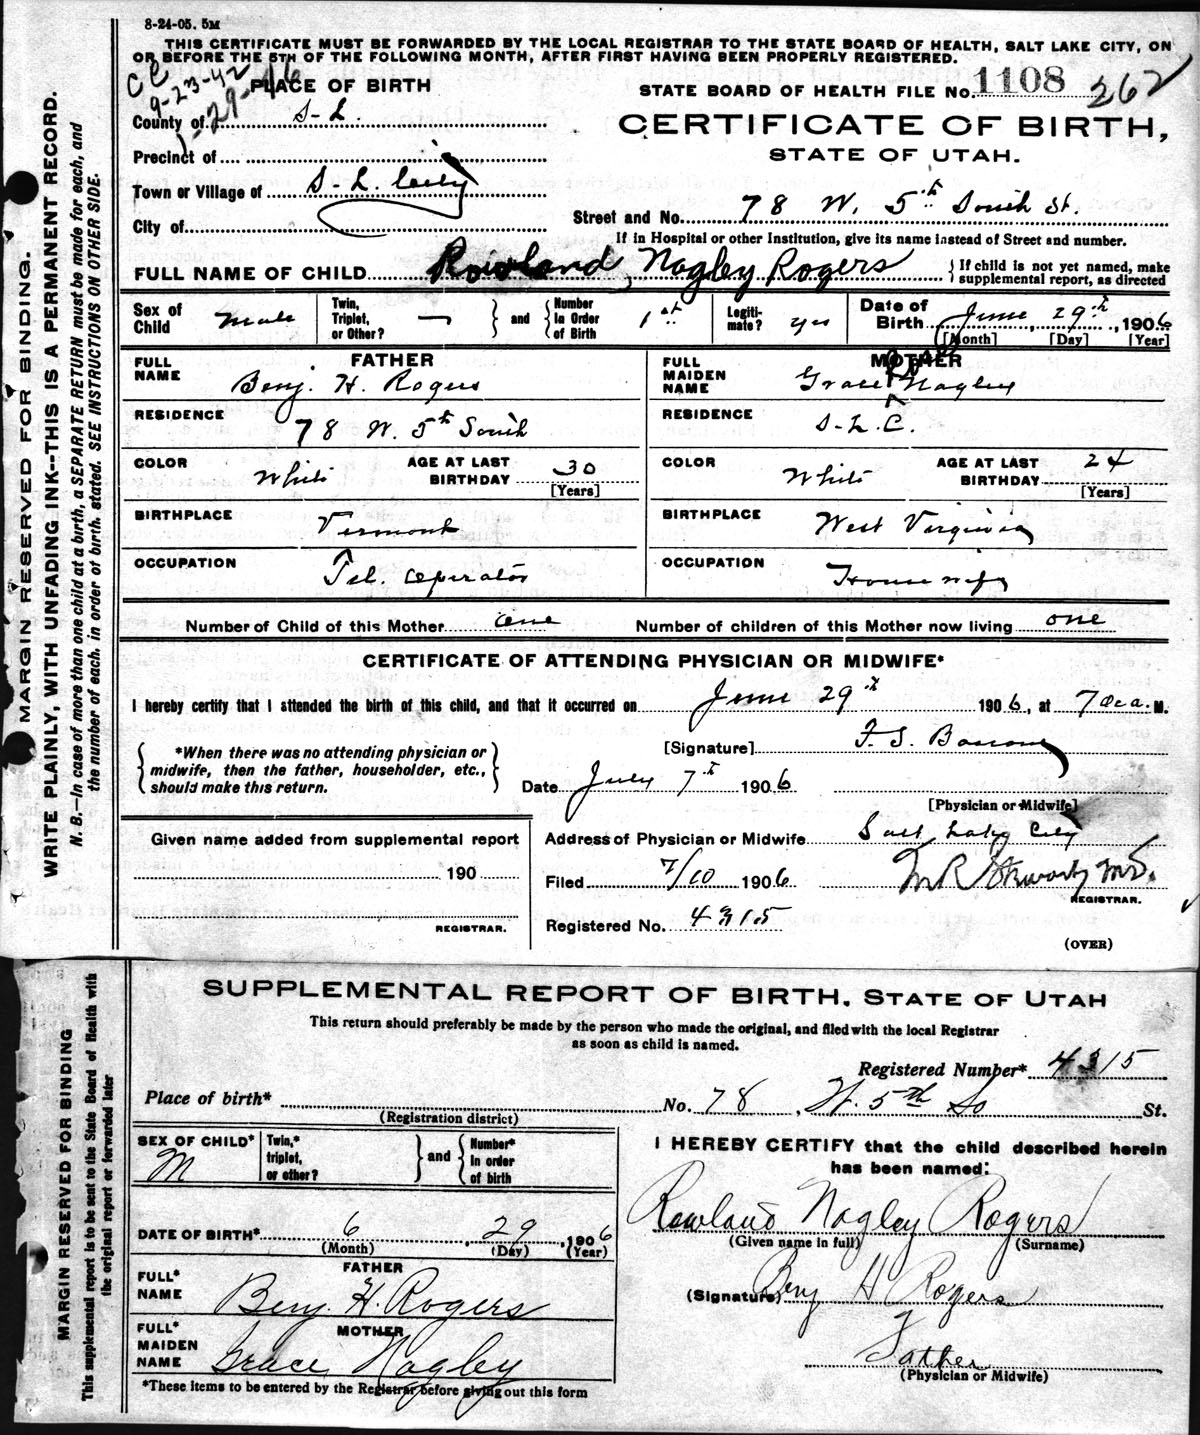 8-24-05. 5M
THIS CERTIFICATE MUST BE FORWARDED BY THE LOCAL REGISTRAR TO THE STATE BOARD OF HEALTH, SALT LAKE CITY, ON
OR BEFORE THE 5TH OF THE FOLLOWING MONTH, AFTER FIRST HAVING BEEN PROPERLY REGISTERED.
CC
9-23-42
1-29-46
PLACE OF BIRTH
STATE BOARD OF HEALTH FILE No. 1108 262
County of S-L.
CERTIFICATE OF BIRTH,
STATE OF UTAH.
Precinct of
Town or Village of S-L. City
City of
Street and No. 78 W. 5th South St.
If in Hospital or other Institution, give its name instead of Street and number.
FULL NAME OF CHILD Rowland Nagley Rogers
If child is not yet named, make
supplemental report, as directed
Sex of Child Male
Twin, Triplet, or Other? —
and
Number In Order of Birth 1st
Legiti-mate? yes
Date of Birth June, 29th, 1906
[Month] [Day] [Year]
FATHER
FULL NAME Benj. H. Rogers
RESIDENCE 78 W. 5th South
COLOR White
AGE AT LAST BIRTHDAY 30
[Years]
BIRTHPLACE Vermont
OCCUPATION Tel. operator
MOTHER
FULL MAIDEN NAME Grace Nagley
RESIDENCE S-L.C.
COLOR White
AGE AT LAST BIRTHDAY 24
[Years]
BIRTHPLACE West Virginia
OCCUPATION Housewife
Number of Child of this Mother one
Number of children of this Mother now living one
CERTIFICATE OF ATTENDING PHYSICIAN OR MIDWIFE*
I hereby certify that I attended the birth of this child, and that it occurred on June 29th 1906, at 7 a. M.
*When there was no attending physician or
midwife, then the father, householder, etc.,
should make this return.
[Signature] F. S. Bascom
Date July 7th 1906
[Physician or Midwife]
Given name added from supplemental report
190
REGISTRAR.
Address of Physician or Midwife Salt Lake City
Filed 7/10 1906
M.D.
REGISTRAR.
Registered No. 4315
(OVER)
MARGIN RESERVED FOR BINDING.
WRITE PLAINLY, WITH UNFADING INK--THIS IS A PERMANENT RECORD.
N. B.—In case of more than one child at a birth, a SEPARATE RETURN must be made for each, and
the number of each, in order of birth, stated. SEE INSTRUCTIONS ON OTHER SIDE.
SUPPLEMENTAL REPORT OF BIRTH, STATE OF UTAH
This return should preferably be made by the person who made the original, and filed with the local Registrar
as soon as child is named.
Registered Number* 4315
Place of birth* No. 78, W. 5th So St.
(Registration district)
SEX OF CHILD* M
Twin,* triplet, or other?
and
Number* In order of birth
DATE OF BIRTH* 6, 29, 1906
(Month) (Day) (Year)
FATHER
FULL* NAME Benj. H. Rogers
MOTHER
FULL* MAIDEN NAME Grace Nagley
*These items to be entered by the Registrar before giving out this form
I HEREBY CERTIFY that the child described herein
has been named:
Rowland Nagley Rogers
(Given name in full) (Surname)
(Signature) Benj H Rogers
Father
(Physician or Midwife)
MARGIN RESERVED FOR BINDING
This supplemental report is to be sent to the State Board of Health with
the original report or forwarded later